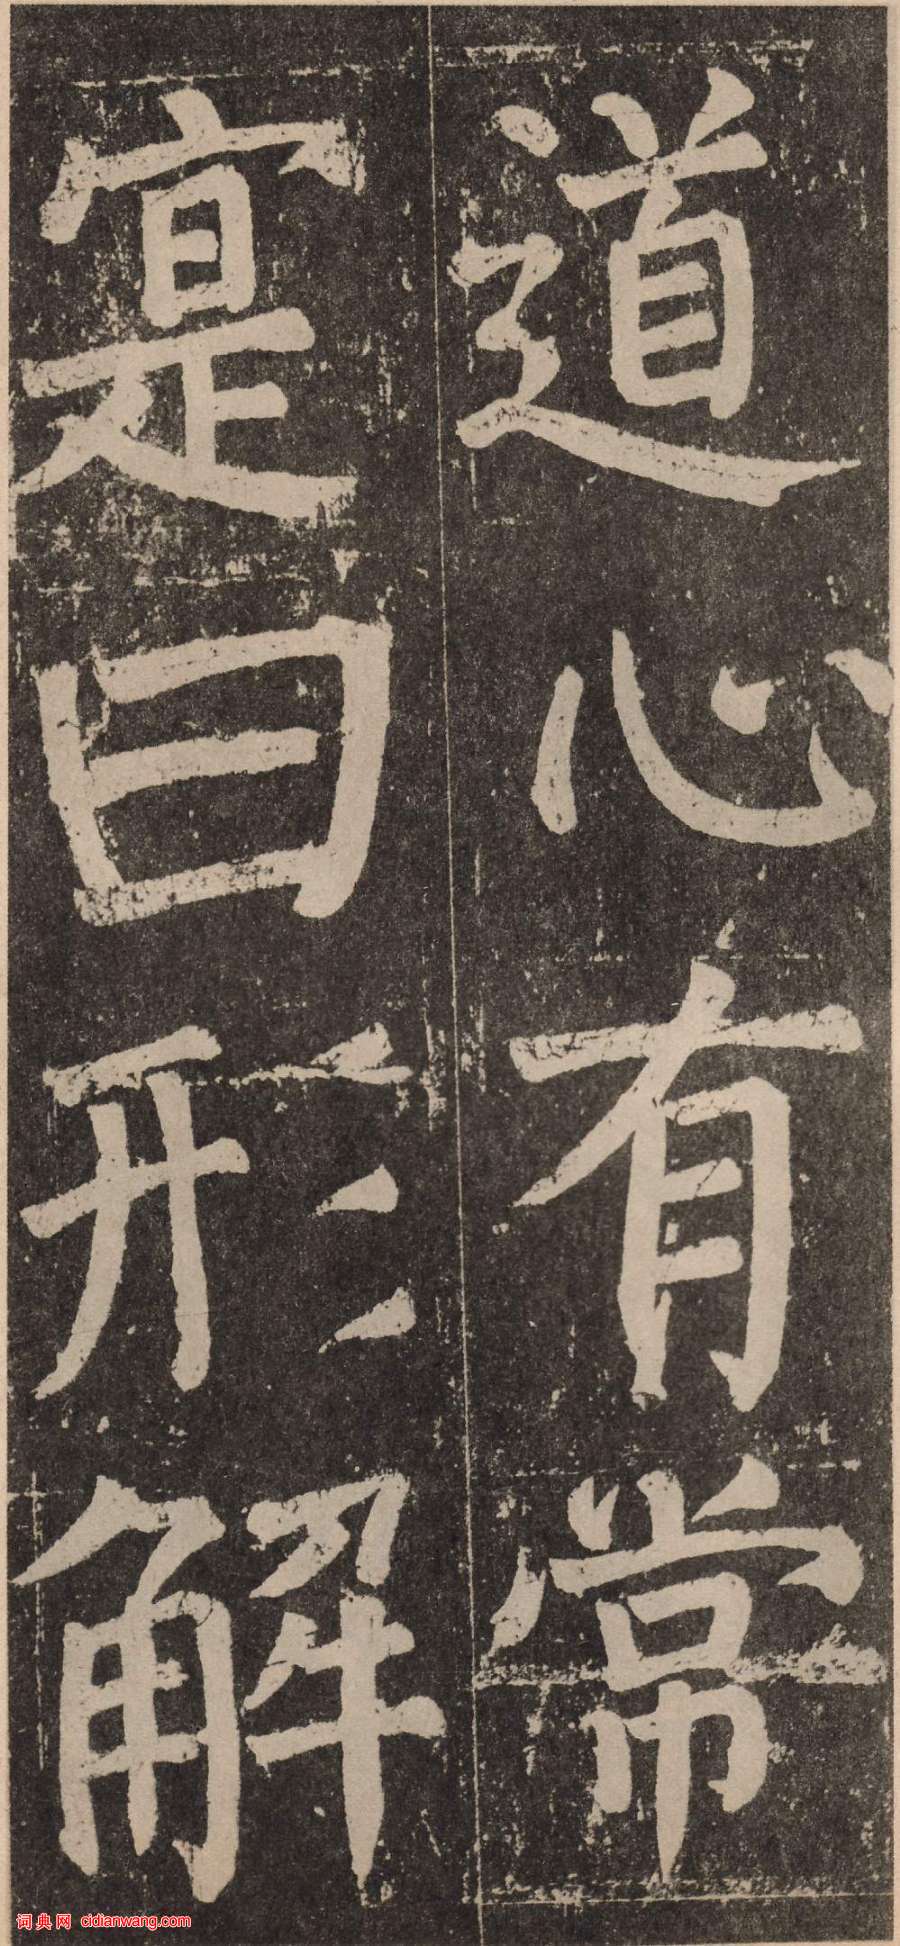 道心有常
寔曰形解
词典网 cidianwang.com